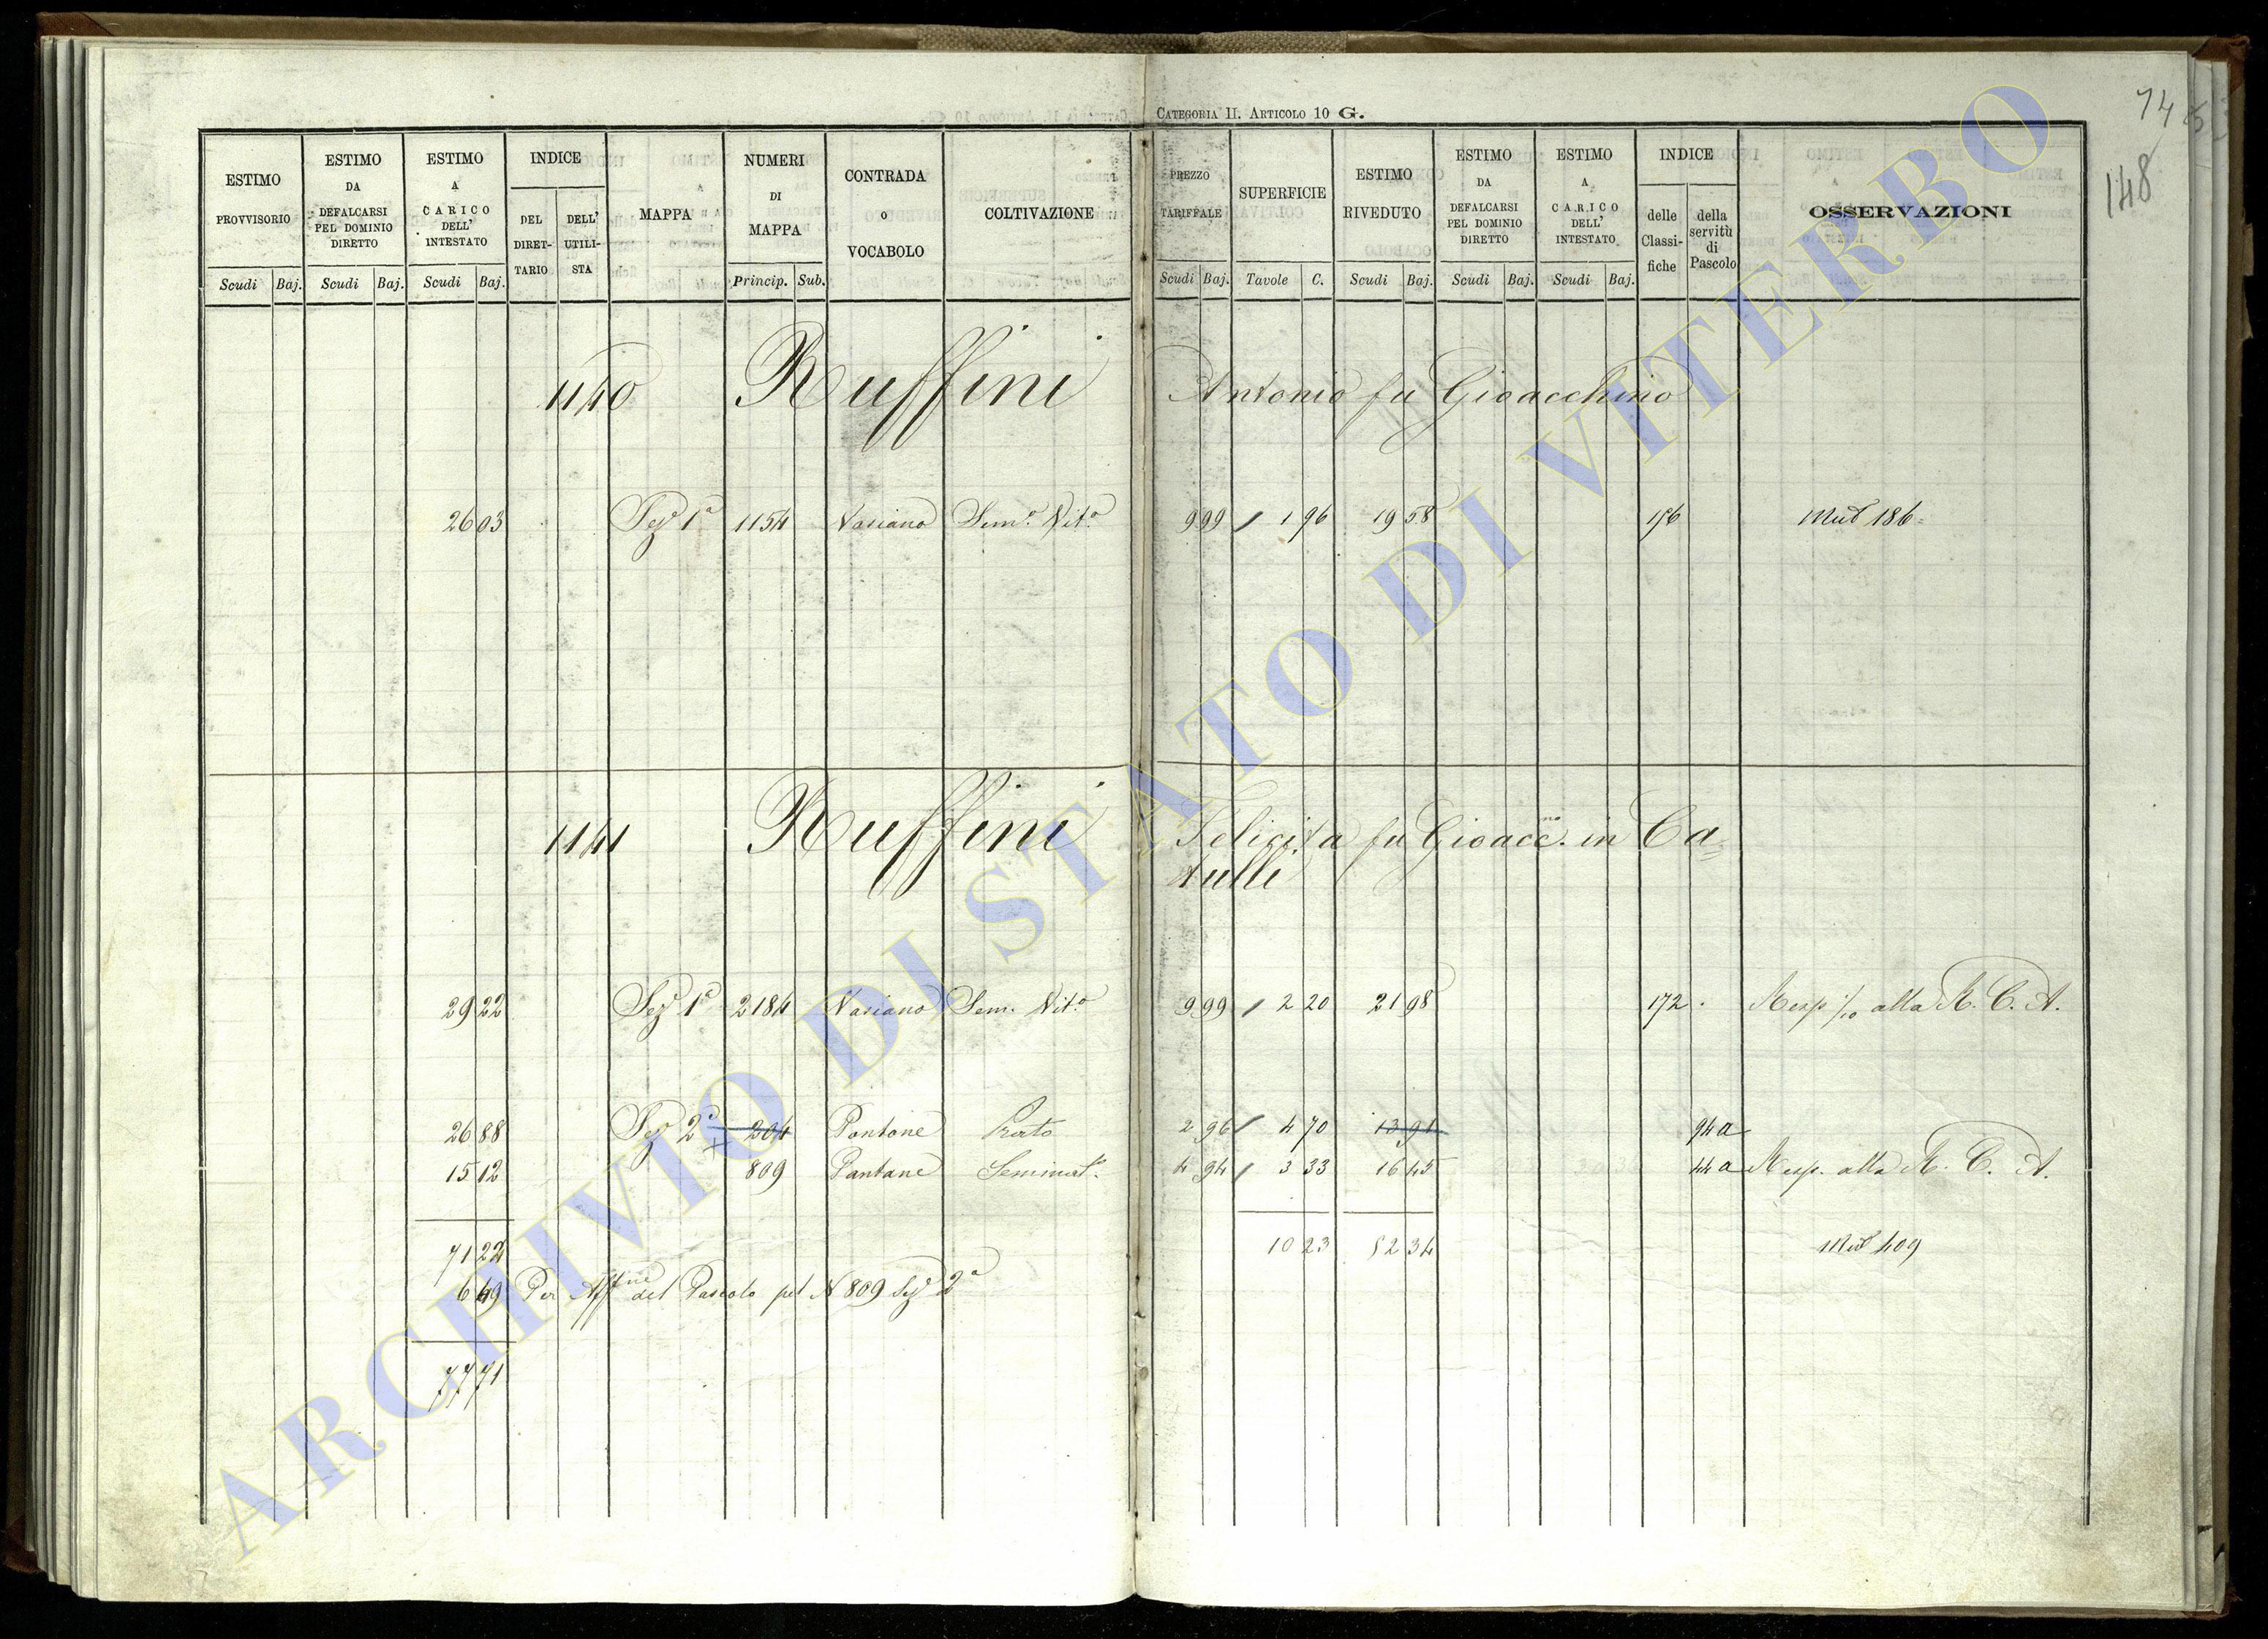 CATEGORIA II. ARTICOLO 10 G.
74
148
ESTIMO PROVVISORIO Scudi Baj.
ESTIMO DA DEFALCARSI PEL DOMINIO DIRETTO Scudi Baj.
ESTIMO A CARICO DELL' INTESTATO Scudi Baj.
INDICE DEL DIRET-TARIO DELL' UTILI-STA
MAPPA
NUMERI DI MAPPA Princip. Sub.
CONTRADA O VOCABOLO
COLTIVAZIONE
PREZZO TARIFFALE Scudi Baj.
SUPERFICIE Tavole C.
ESTIMO RIVEDUTO Scudi Baj.
ESTIMO DA DEFALCARSI PEL DOMINIO DIRETTO Scudi Baj.
ESTIMO A CARICO DELL' INTESTATO Scudi Baj.
INDICE delle Classi-fiche della servitù di Pascolo
OSSERVAZIONI
1140 Ruffini Antonio fu Gioacchino
26 03 Sez.e 1a 1154 Vasiano Sem.o Vit.o 9 99 1 96 19 58 176 Mut 186
1141 Ruffini Felicita fu Gioacc.no in Ca=
tulli
29 22 Sez.e 1a 2184 Vasiano Sem. Vit.o 9 99 2 20 21 98 172 Resp. 1/10 alla R. C. A.
26 88 Sez.e 2a 204 Pontone Prato 2 96 4 70 13 91 94 a
15 12 809 Pantane Seminat.o 4 94 3 33 16 45 44 a Resp. alla R. C. A.
71 22 10 23 52 34 Mut 409
6 49 Per Aff.ne del Pascolo pel N 809 Sez.e 2a
77 71
ARCHIVIO DI STATO DI VITERBO